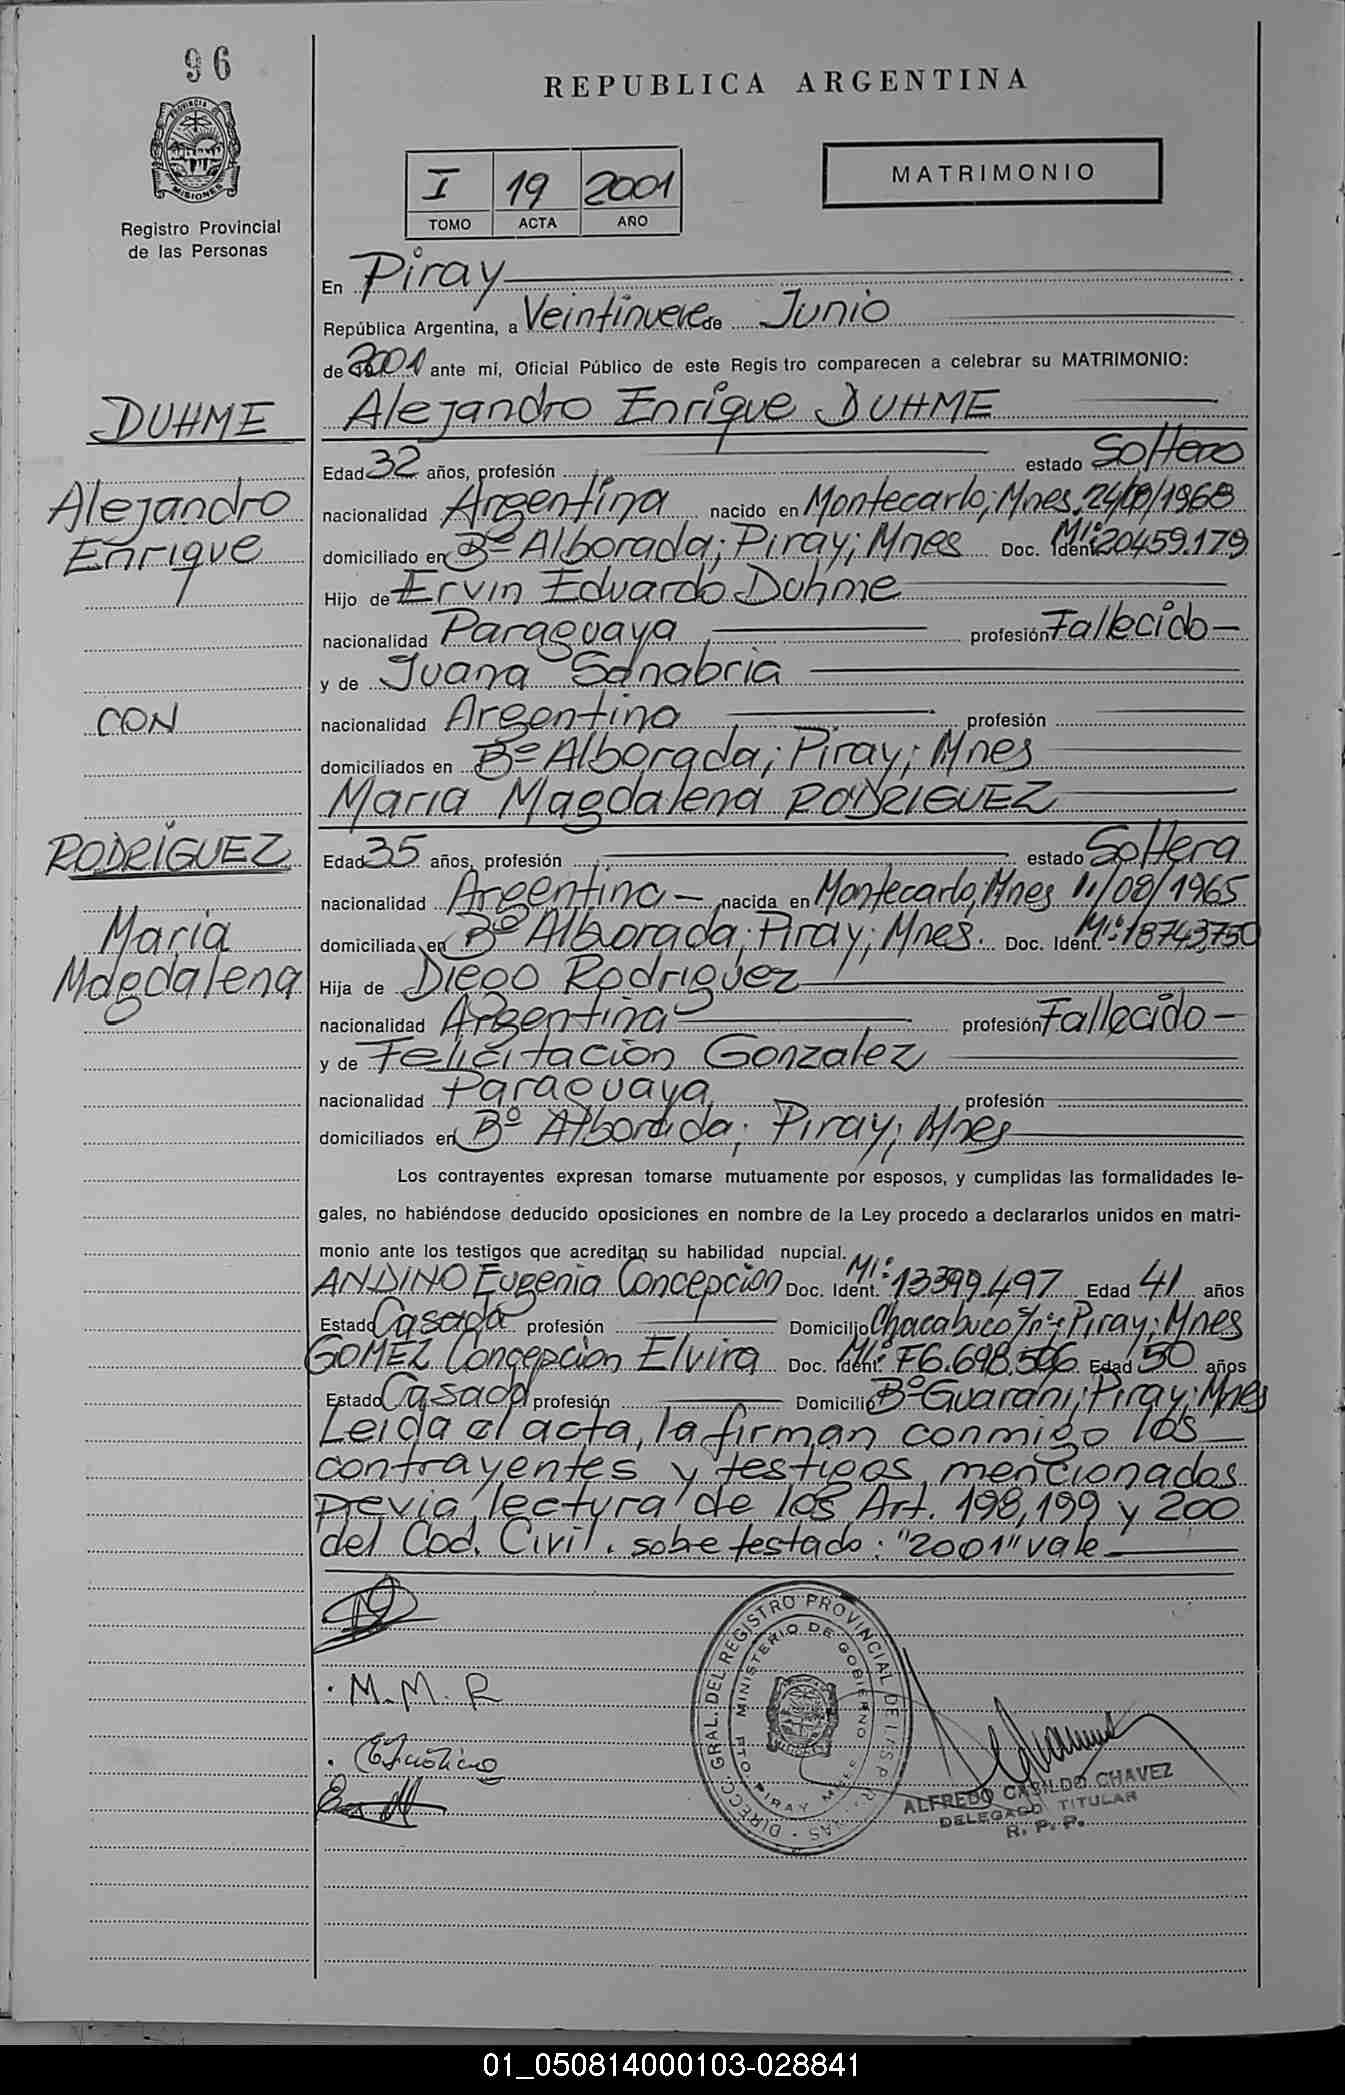 96
REPUBLICA ARGENTINA
PROVINCIA
MISIONES
Registro Provincial
de las Personas
I 19 2001
TOMO ACTA AÑO
MATRIMONIO
En Piray
República Argentina, a Veintinueve de Junio
de 2001 ante mí, Oficial Público de este Registro comparecen a celebrar su MATRIMONIO:
DUHME
Alejandro Enrique DUHME
Edad 32 años, profesión estado Soltero
Alejandro
nacionalidad Argentina nacido en Montecarlo; Mnes. 1968
Enrique
domiciliado en Bº Alborada; Piray; Mnes Doc. Ident. MI: 20459.179
Hijo de Ervin Eduardo Duhme
nacionalidad Paraguaya profesión Fallecido
y de Juana Sanabria
CON
nacionalidad Argentina profesión
domiciliados en Bº Alborada; Piray; Mnes
Maria Magdalena RODRIGUEZ
RODRIGUEZ
Edad 35 años, profesión estado Soltera
nacionalidad Argentina nacida en Montecarlo, Mnes 11/08/1965
Maria
domiciliada en Bº Alborada; Piray; Mnes. Doc. Ident. MI: 18743,750
Magdalena
Hija de Diego Rodriguez
nacionalidad Argentina profesión Fallecido
y de Felicitacion Gonzalez
nacionalidad Paraguaya profesión
domiciliados en Bº Alborada; Piray; Mnes
Los contrayentes expresan tomarse mutuamente por esposos, y cumplidas las formalidades le-
gales, no habiéndose deducido oposiciones en nombre de la Ley procedo a declararlos unidos en matri-
monio ante los testigos que acreditan su habilidad nupcial.
ANDINO Eugenia Concepcion Doc. Ident. MI: 13399.497 Edad 41 años
Estado Casada profesión Domicilio Chacabuco s/nº; Piray; Mnes
GOMEZ Concepcion Elvira Doc. Ident. MI: F6.698.506 Edad 50 años
Estado Casada profesión Domicilio Bº Guarani; Piray; Mnes
Leida el acta, la firman conmigo los
contrayentes y testigos mencionados
previa lectura de los Art. 198, 199 y 200
del Cod. Civil. sobre testado: "2001" vale
M. M. R
DIRECC. GRAL. DEL REGISTRO PROVINCIAL DE LAS PERSONAS
MINISTERIO DE GOBIERNO
PTO. PIRAY MNES
ALFREDO CASILDO CHAVEZ
DELEGADO TITULAR
R. P. P.
01_050814000103-028841